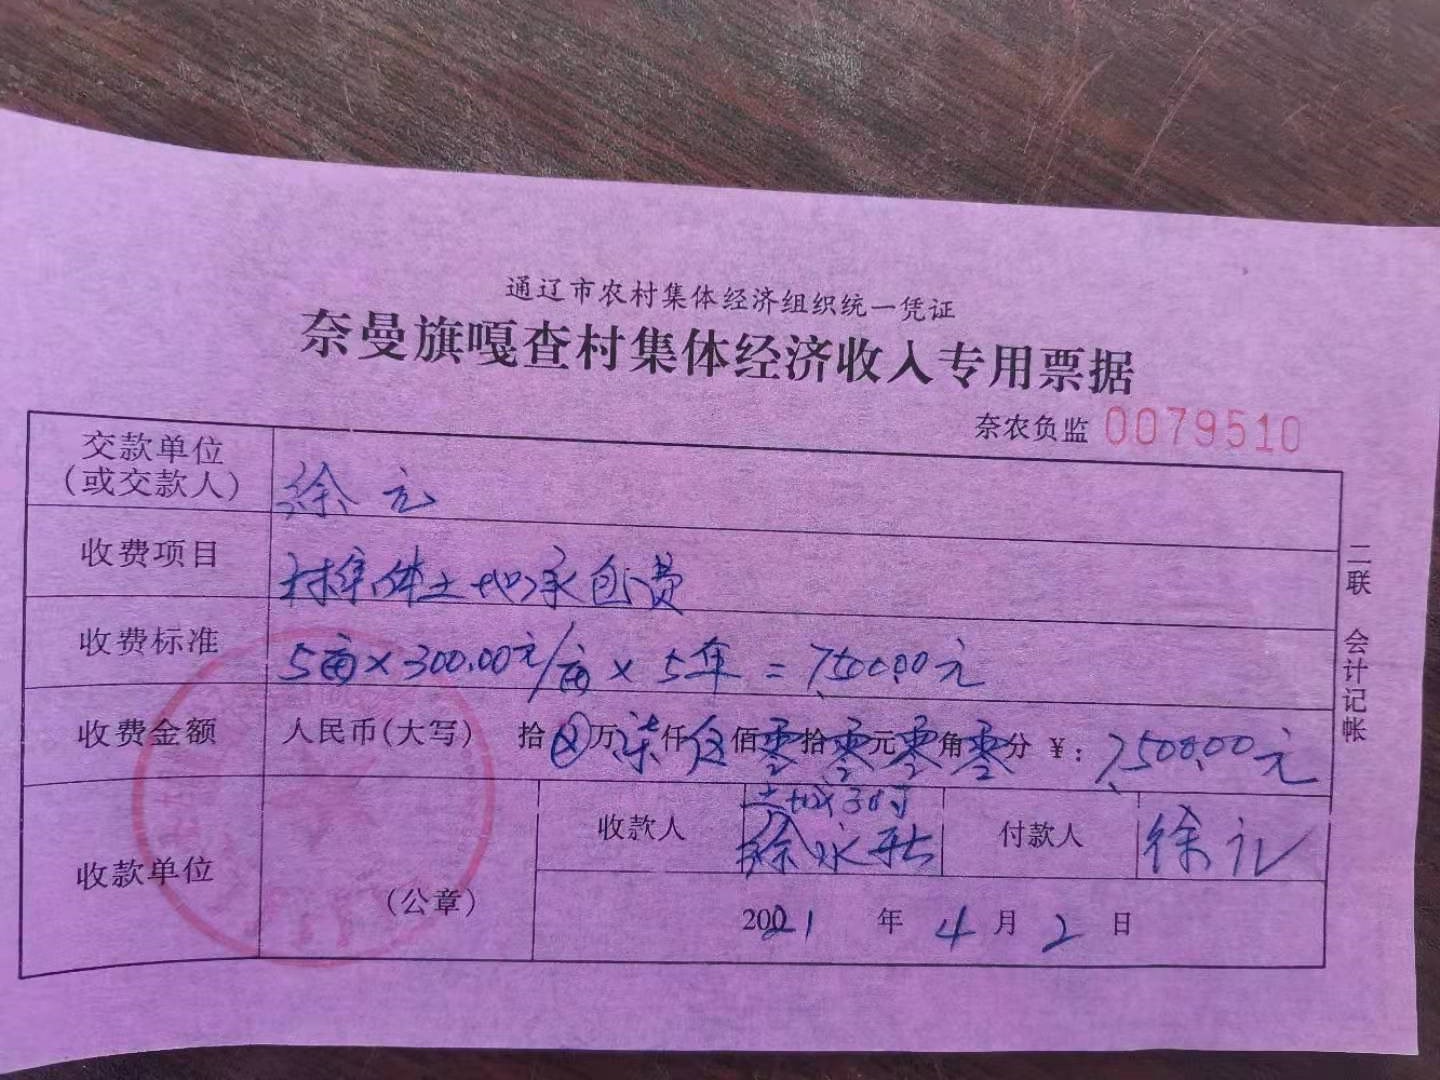 通辽市农村集体经济组织统一凭证
奈曼旗嘎查村集体经济收入专用票据
奈农负监 0079510
交款单位
(或交款人)
徐元
收费项目
村集体土地承包费
收费标准
5亩×300.00元/亩×5年=7,500.00元
收费金额
人民币(大写) 拾 万柒仟伍佰零拾零元零角零分 ¥:7,500.00元
收款单位
(公章)
收款人
徐永
付款人
徐元
2021 年 4 月 2 日
二联 会计记帐